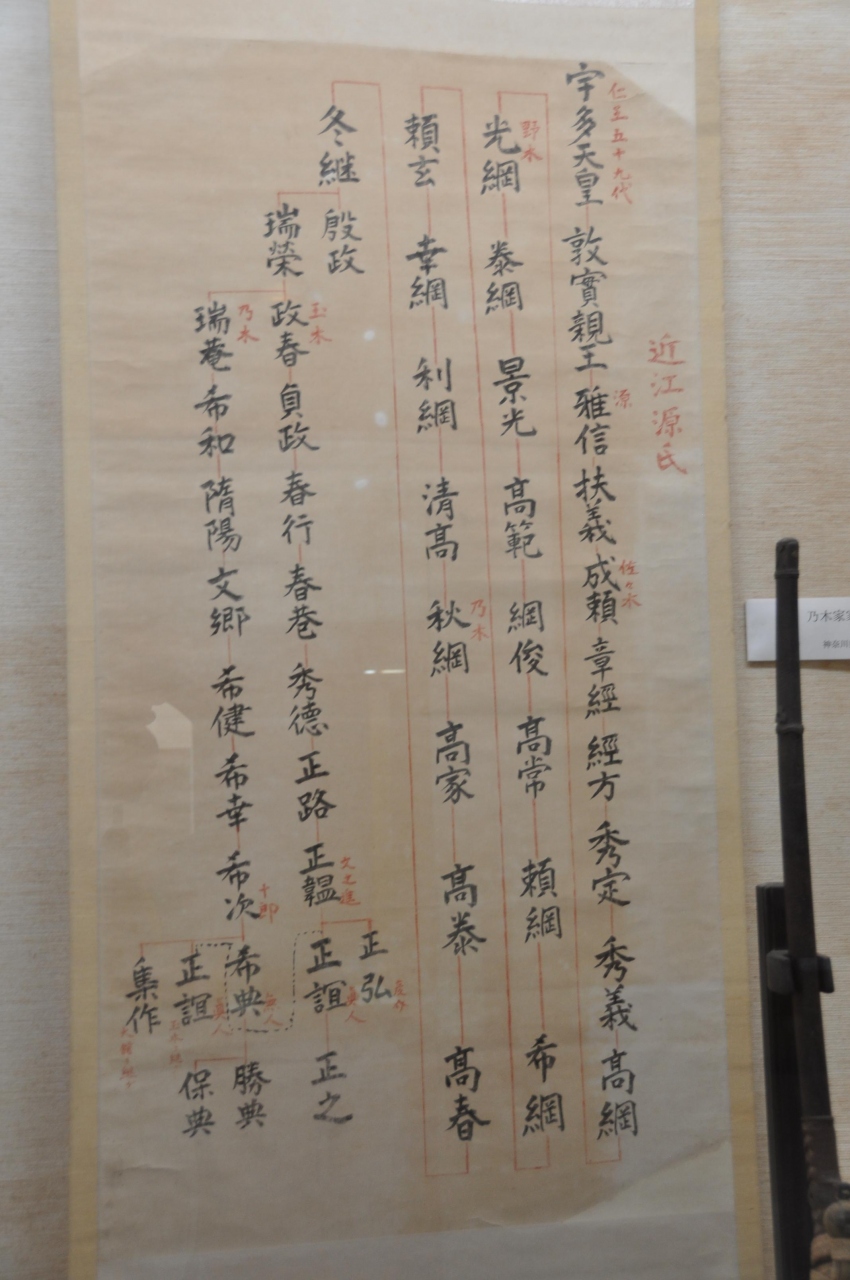 近江源氏
仁王五十九代
宇多天皇 敦實親王 雅信 扶義 成頼 章經 經方 秀定 秀義 高綱
源
佐々木
野木
光綱 泰綱 景光 高範 綱俊 高常 頼綱 希綱
頼玄 幸綱 利綱 清高 秋綱 高家 高泰 高春
乃木
冬継 殷政
瑞榮 政春 貞政 春行 春巷 秀德 正路 正韞
玉木
正弘
正誼 正之
真人
乃木
瑞菴 希和 隋陽 文郷 希健 希幸 希次
十郎
希典 勝典
無人
保典
正誼
真人
集作
乃木家
神奈川